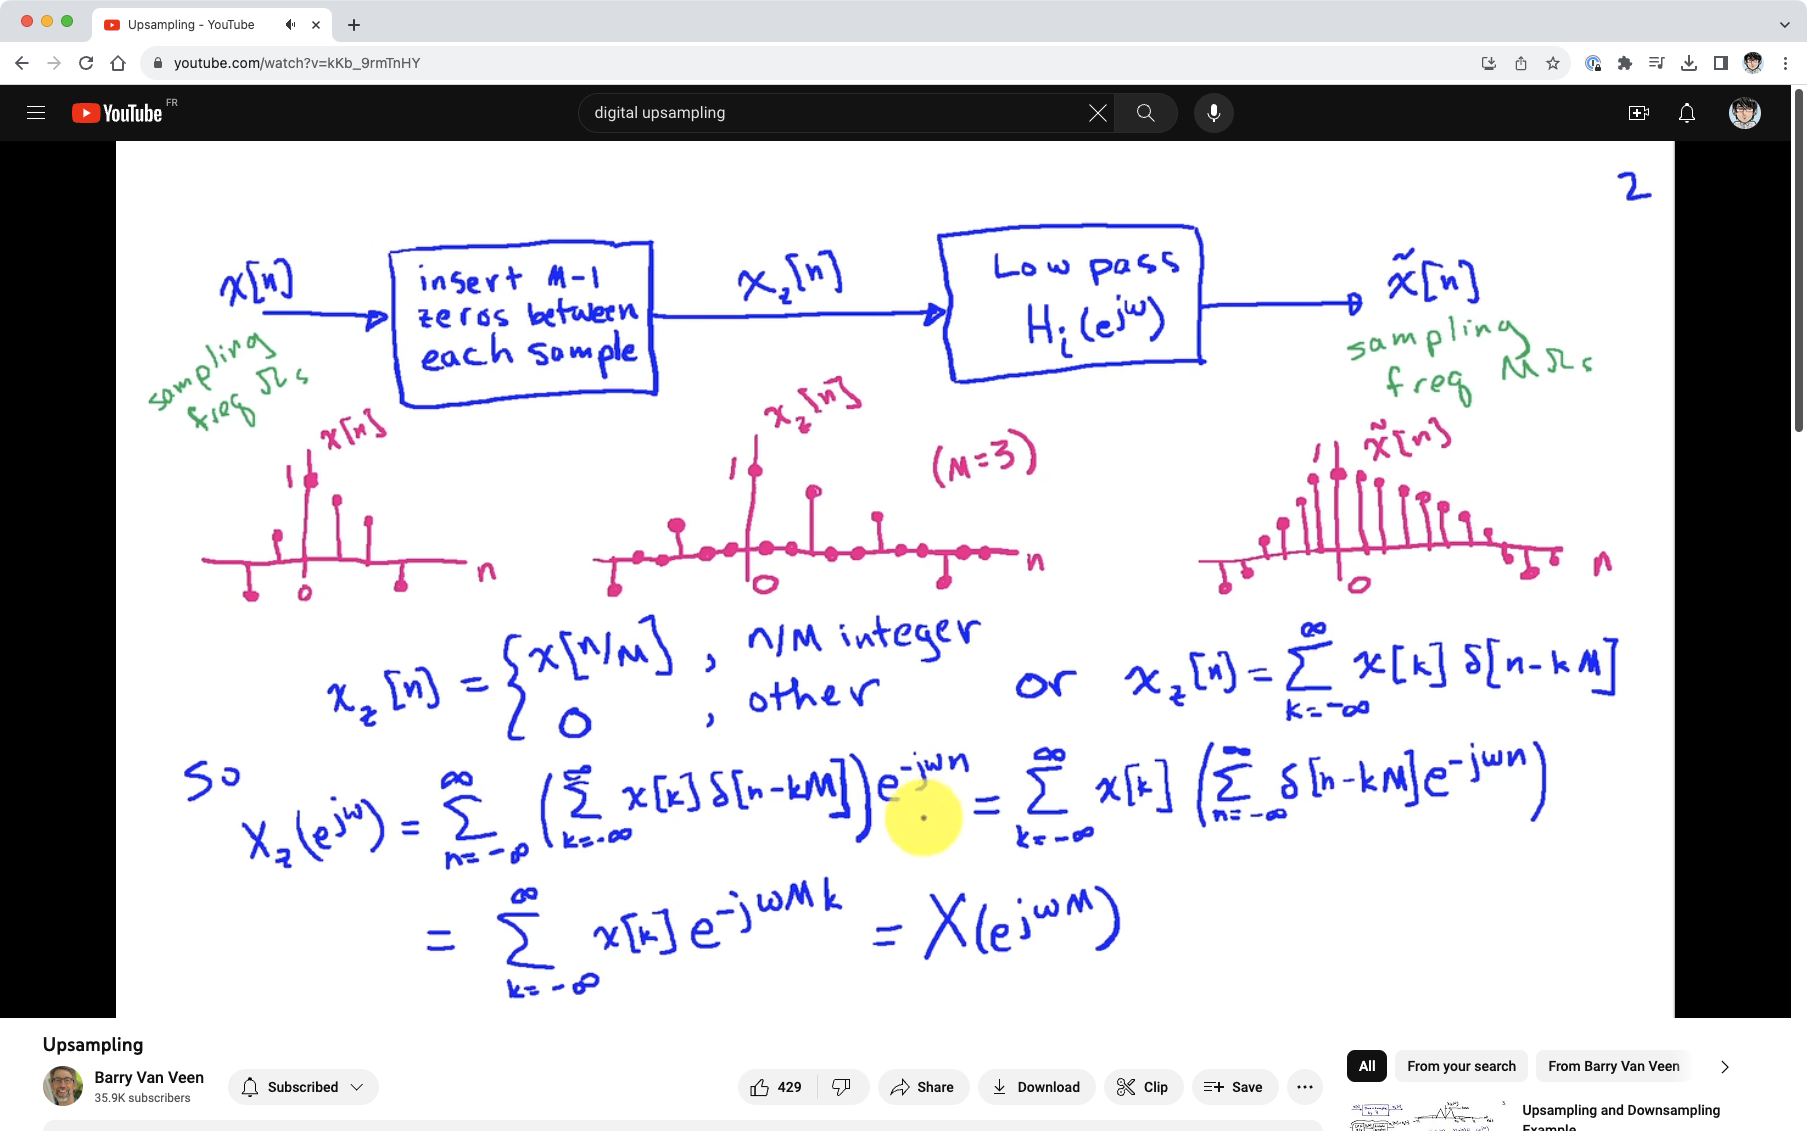 Upsampling - YouTube
youtube.com/watch?v=kKb_9rmTnHY
YouTube FR
digital upsampling
2
x[n]
insert M-1
zeros between
each sample
x_z[n]
Low pass
H_i(e^{jω})
x̃[n]
sampling
freq Ωs
sampling
freq MΩs
x[n]
1
0
n
x_z[n]
1
(M=3)
0
n
x̃[n]
1
0
n
x_z[n] = { x[n/M] , n/M integer
0 , other
or x_z[n] = ∑_{k=-∞}^{∞} x[k] δ[n-kM]
so
X_z(e^{jω}) = ∑_{n=-∞}^{∞} (∑_{k=-∞}^{∞} x[k] δ[n-kM]) e^{-jωn} = ∑_{k=-∞}^{∞} x[k] (∑_{n=-∞}^{∞} δ[n-kM] e^{-jωn})
= ∑_{k=-∞}^{∞} x[k] e^{-jωMk} = X(e^{jωM})
Upsampling
Barry Van Veen
35.9K subscribers
Subscribed
429
Share
Download
Clip
Save
All
From your search
From Barry Van Veen
Upsampling and Downsampling
Example